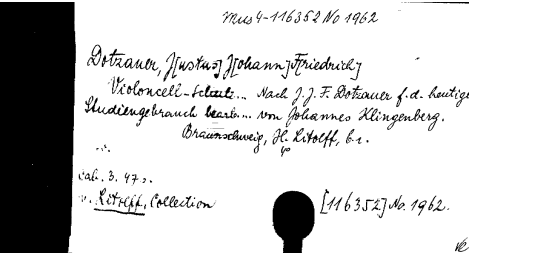 Mus 4-116352 No 1962
Dotzauer, J[ustus] J[ohann] F[riedrich]
Violoncell-Schule... Nach J. J. F. Dotzauer f. d. heutige
Studiengebrauch bearb... von Johannes Klingenberg.
Braunschweig, H. Litolff, b. r.
4°
cab. 3. 47 s.
v. Litolff, Collection
[116352] No. 1962.